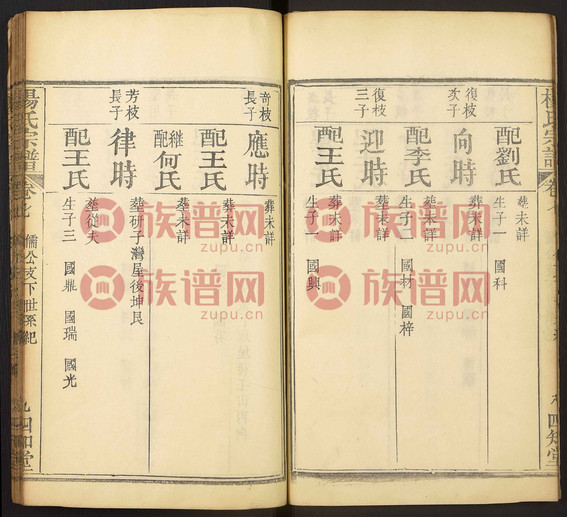 楊氏宗譜
卷七
四知堂
配劉氏
葬未詳
生子一 國科
復枝次子
向時
葬未詳
配李氏
葬未詳
生子二 國材 國梓
復枝三子
迎時
葬未詳
配王氏
葬未詳
生子一 國興
奇枝長子
應時
葬未詳
配王氏
葬未詳
繼配何氏
葬未詳
芳枝長子
律時
塟研子灣屋後坤艮
配王氏
塟從夫
生子三 國鼎 國瑞 國光
楊氏宗譜
卷七
儒公支下世系紀
九
四知堂
族谱网
zupu.cn
族谱网
zupu.cn
族谱网
zupu.cn
族谱网
zupu.cn